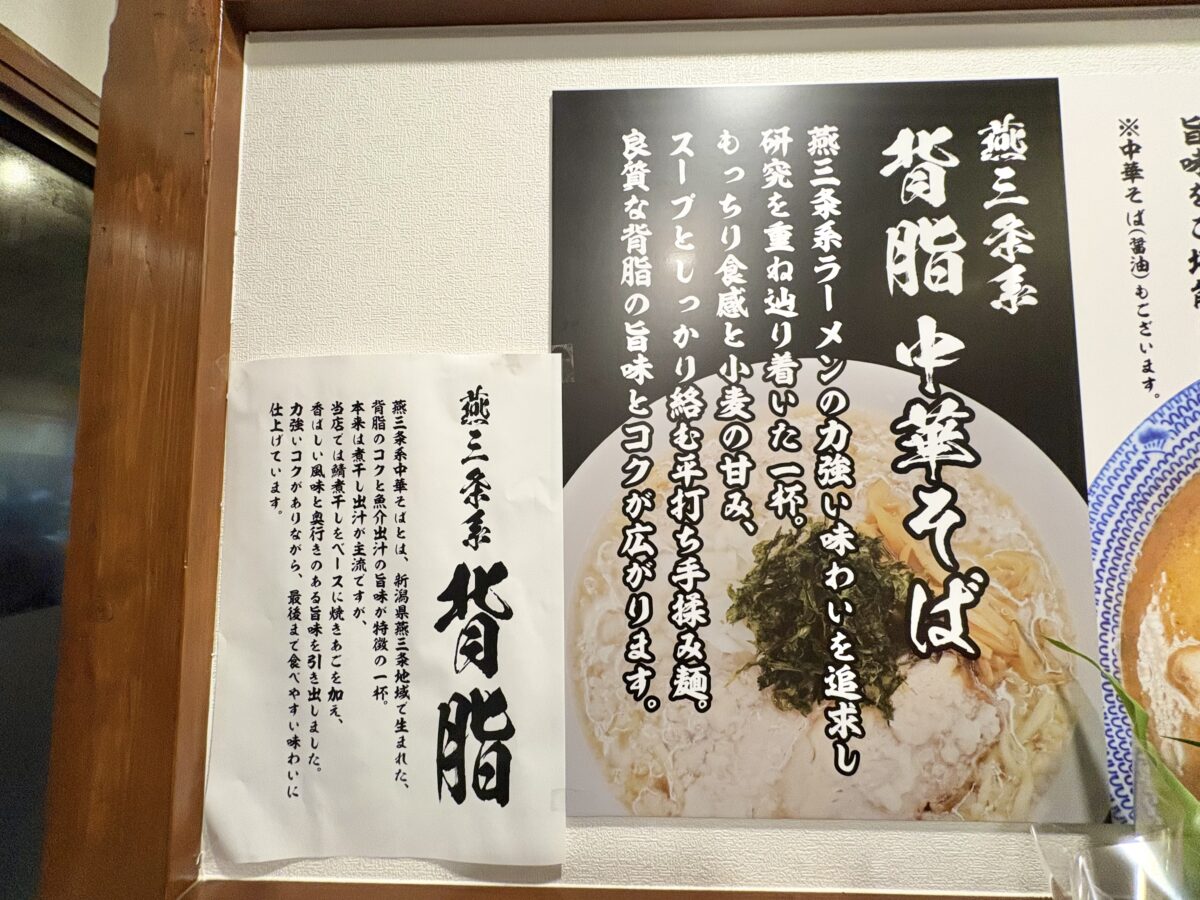 ※中華そば(醤油)もございます。
燕三条系
背脂 中華そば
燕三条系ラーメンの力強い味わいを追求し
研究を重ね辿り着いた一杯。
もっちり食感と小麦の甘み、
スープとしっかり絡む平打ち手揉み麺。
良質な背脂の旨味とコクが広がります。
燕三条系 背脂
燕三条系中華そばとは、新潟県燕三条地域で生まれた、
背脂のコクと魚介出汁の旨味が特徴の一杯。
本来は煮干し出汁が主流ですが、
当店では鯖煮干しをベースに焼きあごを加え、
香ばしい風味と奥行きのある旨味を引き出しました。
力強いコクがありながら、最後まで食べやすい味わいに
仕上げています。